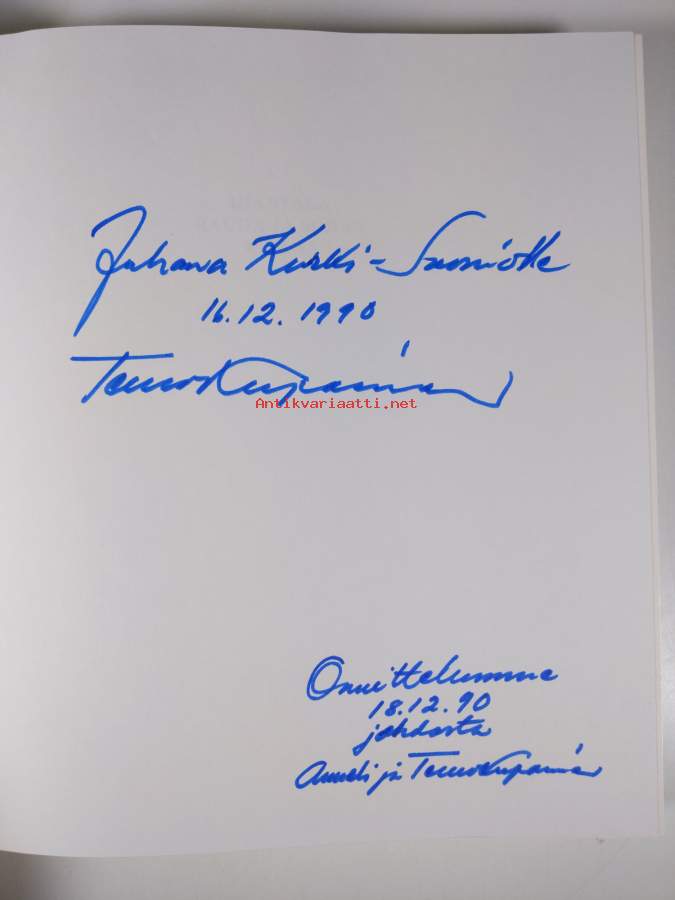 Juhana Kurki-Suoniolle
16.12.1990
Teuvo Kupari
Antikvariaatti.net
Onnittelumme
18.12.90
johdosta
Anneli ja Teuvo